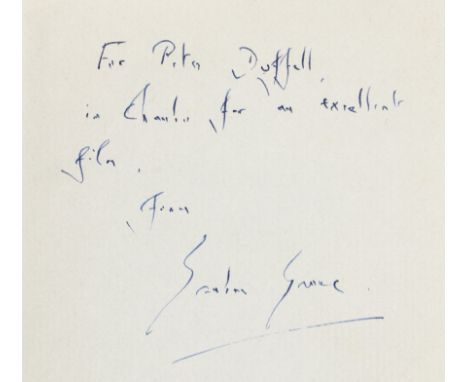 For Peter Duffell,
in thanks for an excellent
film.
from
Graham Greene.